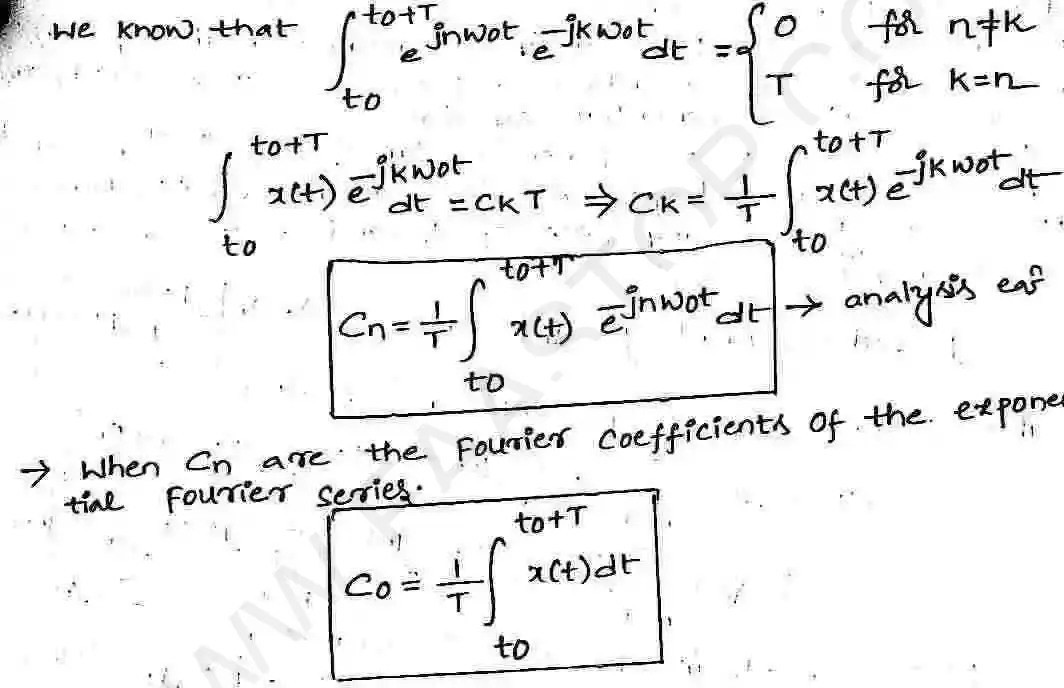 We know that ∫_{t0}^{t0+T} e^{jnω0t} . e^{-jkω0t} dt = { 0 for n≠k
T for k=n
∫_{t0}^{t0+T} x(t) e^{-jkω0t} dt = CkT ⇒ Ck = 1/T ∫_{t0}^{t0+T} x(t) e^{-jkω0t} dt
Cn = 1/T ∫_{t0}^{t0+T} x(t) e^{-jnω0t} dt → analysis
→ When Cn are the Fourier coefficients of the expone
tial Fourier series.
C0 = 1/T ∫_{t0}^{t0+T} x(t) dt